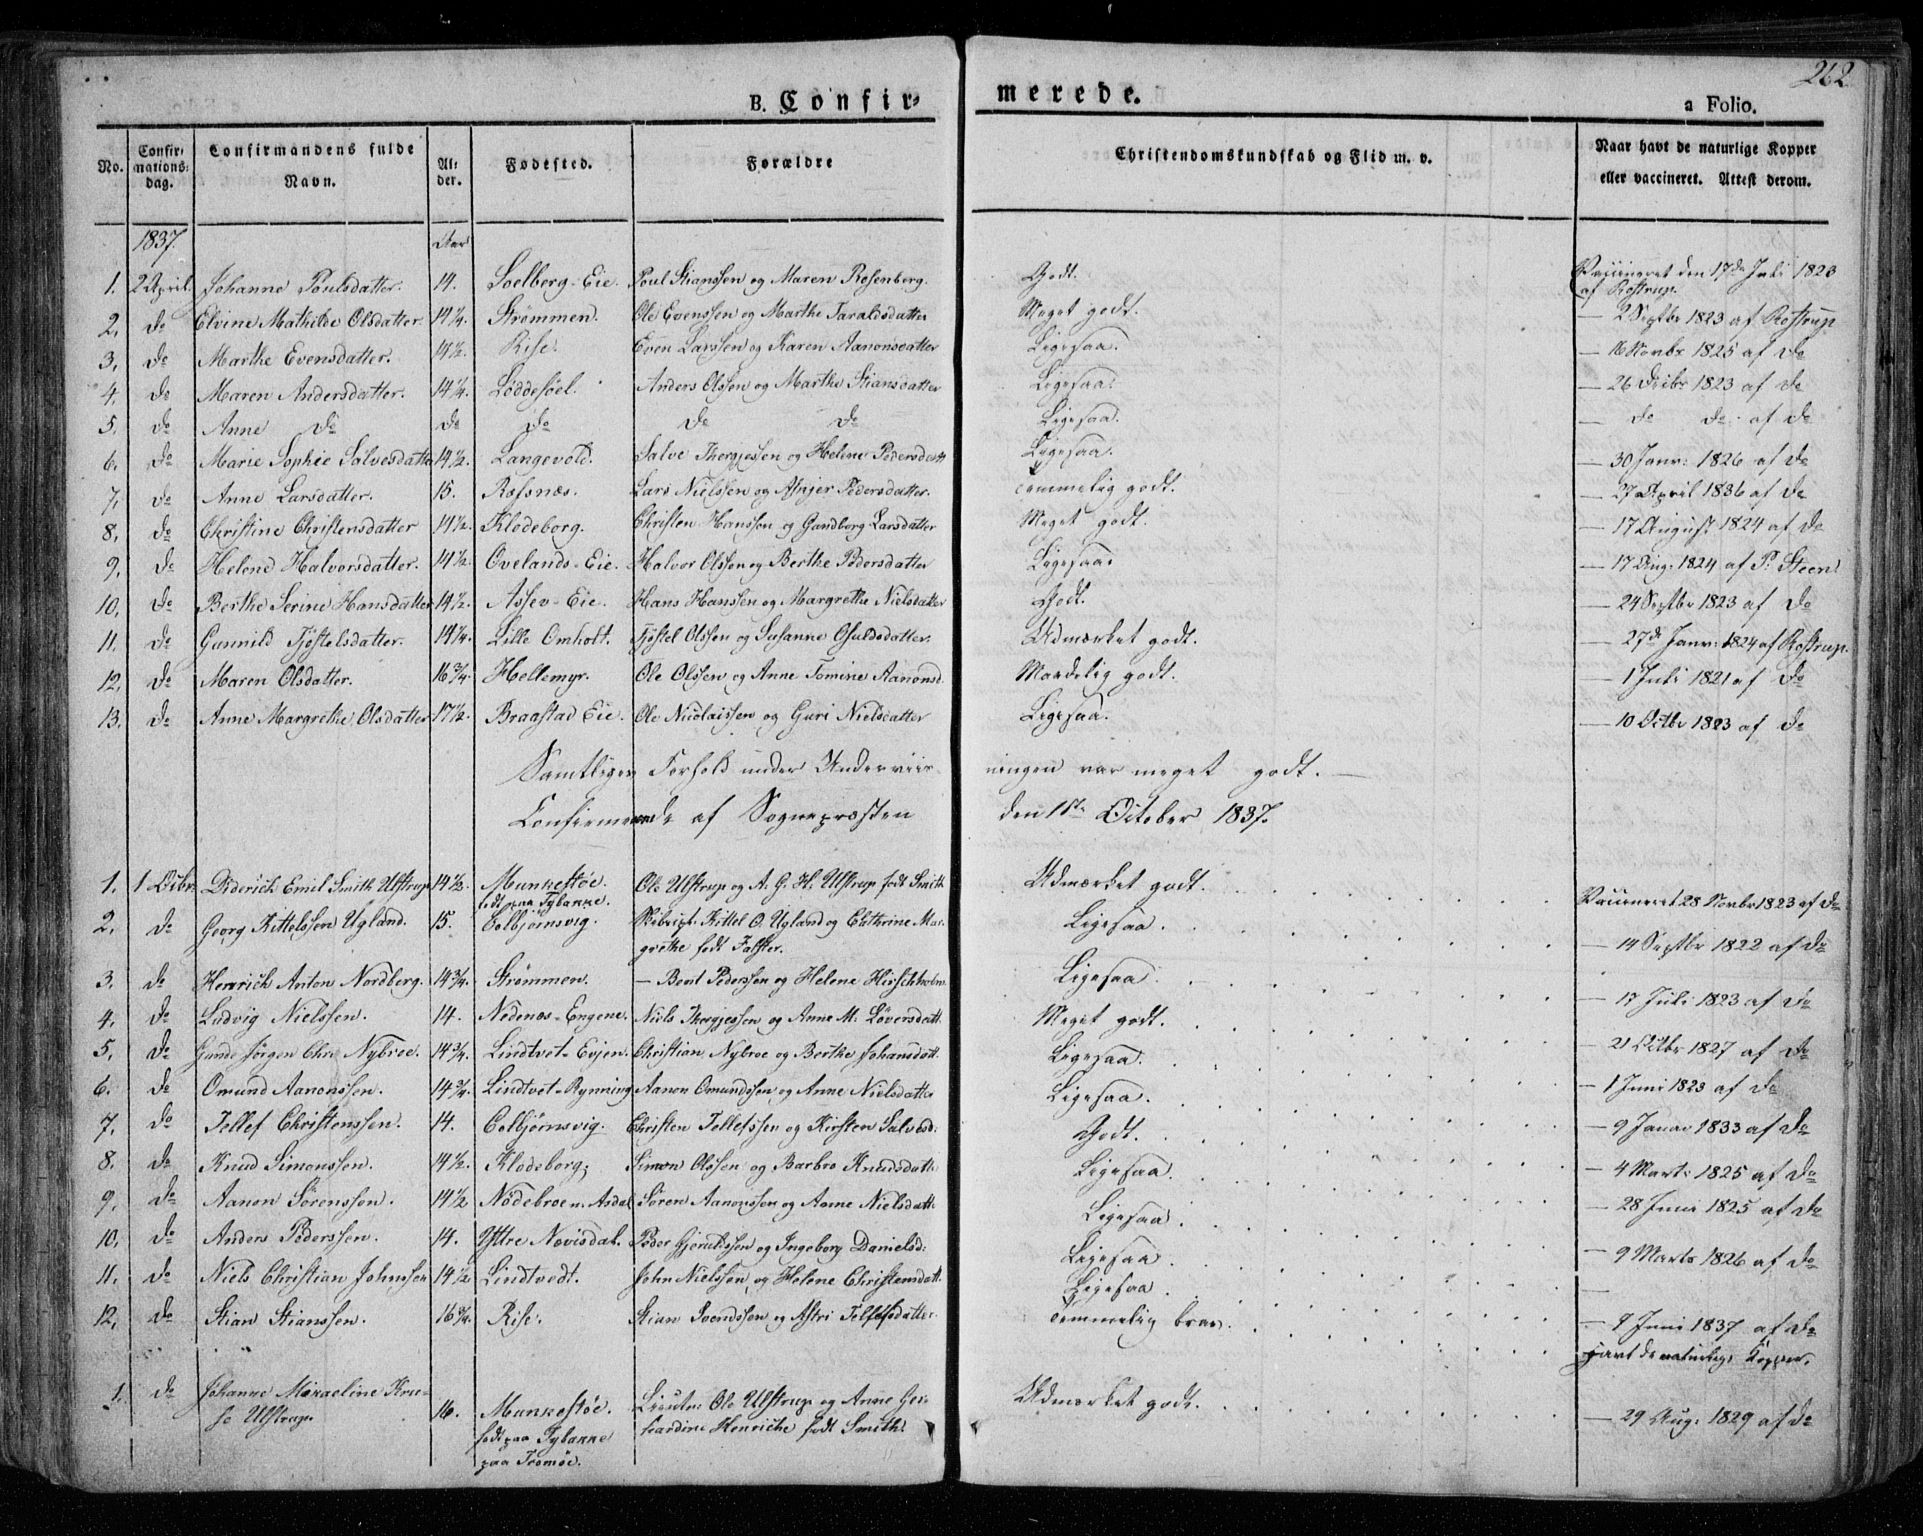 262
B. Confir-
merede.
a Folio.
No. Confirmations-dag. Confirmandens fulde Navn. Alder. Fødested. Forældre Christendomskundskab og Flid m. v. Naar havt de naturlige Kopper eller vaccineret. Attest derom.
1837. Aar
1. 2 April. Johanne Poulsdatter. 14. Soelberg-Eie. Poul Stianssen og Maren Rosenberg. Godt. Vaccineret den 17de Juli 1823 af Rostrup.
2. do Elvine Mathilde Olsdatter 14 1/4. Strømmen. Ole Evenssen og Marthe Taraldsdatter Meget godt. — 2 Septbr 1823 af Rostrup
3. do Marthe Evensdatter. 14 1/2. Rise. Even Larssen og Karen Aanonsdatter Ligesaa. — 16 Novbr 1825 af do
4. do Maren Andersdatter. 14 1/4. Løddesöel. Anders Olssen og Marthe Stiansdatter Ligesaa. — 26 Decbr 1823 af do
5. do Anne do do do do do Ligesaa. — do do af do
6. do Marie Sophie Salvesdatter 14 1/2. Langevold. Salve Thergjessen og Helene Pedersdatt Ligesaa. — 30 Janv: 1826 af do
7. do Anne Larsdatter. 15. Rossnæs. Lars Nielssen og Asnjer Pedersdatter. Temmelig godt. — 27 April 1836 af do
8. do Christine Christensdatter 14 1/2. Klodeborg. Christen Hanssen og Gundborg Larsdatter Meget godt. — 17 August 1824 af do
9. do Helene Halvorsdatter. 14 1/2. Ovelands-Eie. Halvor Olssen og Berthe Pedersdatter Ligesaa. — 17 Aug. 1824 af P. Steen
10. do Berthe Serine Hansdatter 14 1/2. Assev-Eie. Hans Hanssen og Margrethe Nielsdatter Godt. — 24 Septbr 1823 af do
11. do Gunnild Tjöstelsdatter. 14 1/4. Lille Omholt. Tjöstel Olssen og Susanne Osuldsdatter. Udmærket godt. — 27de Janv: 1824 af Rostrup.
12. do Maren Olsdatter. 16 3/4. Hellemyr. Ole Olssen og Anne Tomine Aanonsd. Maadelig godt. — 1 Juli 1821 af do
13. do Anne Margrethe Olsdatter 17 1/2. Braastad Eie. Ole Nicolaissen og Guri Nielsdatter Ligesaa. — 10 Octbr 1823 af do
Samtliges Forhold under Underviisningen var meget godt. —
Confirmerede af Sognepræsten den 1ste October 1837.
1. 1 Octbr. Diderich Emil Smith Ulstrup 14 1/2. Munkestøe. født paa Tybakke. Ole Ulstrup og A. G. H. Ulstrup født Smith Udmærket godt. Vaccineret 28 Novbr 1823 af do
2. do Georg Kittelssen Ugland. 15. Colbjørnsvig. Skibscpt. Kittel O. Ugland og Cathrine Margrethe født Falster. Ligesaa — 14 Septbr 1822 af do
3. do Henrich Anton Nordberg. 14 3/4. Strømmen. — Bent Pedersen og Helene Hirschholm. Ligesaa — 17 Juli 1823 af do
4. do Ludvig Nielssen. 14. Nedenæs-Engene. Niels Thergjessen og Anne M: Løversdatt. Meget godt. — 21 Octbr 1827 af do
5. do Gunde Jörgen Chr. Nybroe. 14 3/4. Lindtvet-Evjen. Christian Nybroe og Berthe Johansdatt. Ligesaa — 1 Juni 1823 af do
6. do Omund Aanonssen. 14 3/4. Lindtvet-Rynning Aanon Omundssen og Anne Nielsdatter Ligesaa — 9 Janv 1833 af do
7. do Tellef Christenssen. 14. Colbjørnsvig. Christen Tellefssen og Kirsten Salvesd: Godt. — 4 Marts 1825 af do
8. do Knud Simonssen. 14 1/2. Klodeborg. Simon Olssen og Barbro Knudsdatt: Ligesaa — 28 Juni 1825 af do
9. do Aanon Sörenssen. 14 1/2 Nödebroe n. Asdal Sören Aanonssen og Anne Nielsdatt: Ligesaa — 9 Marts 1826 af do
10. do Anders Pederssen. 14. Yttre Nævisdal. Peder Gjerulssen og Ingeborg Danielsd: Ligesaa —
11. do Niels Christian Johnssen 14 1/2 Lindtvedt. John Nielssen og Helene Christensdatt. Ligesaa — 9 Juni 1837 af do
12. do Stian Stianssen. 16 3/4. Rise. Stian Svendssen og Astri Tellefsdatter. Temmelig brav. havt de naturlige Kopper.
1. do Johanne Micaeline Kruse Ulstrup 16. Munkestøe. født paa Tybakke paa Tromøe. Lieuten: Ole Ulstrup og Anne Gerhardine Henriche født Smith. Udmærket godt. — 29 Aug. 1829 af do